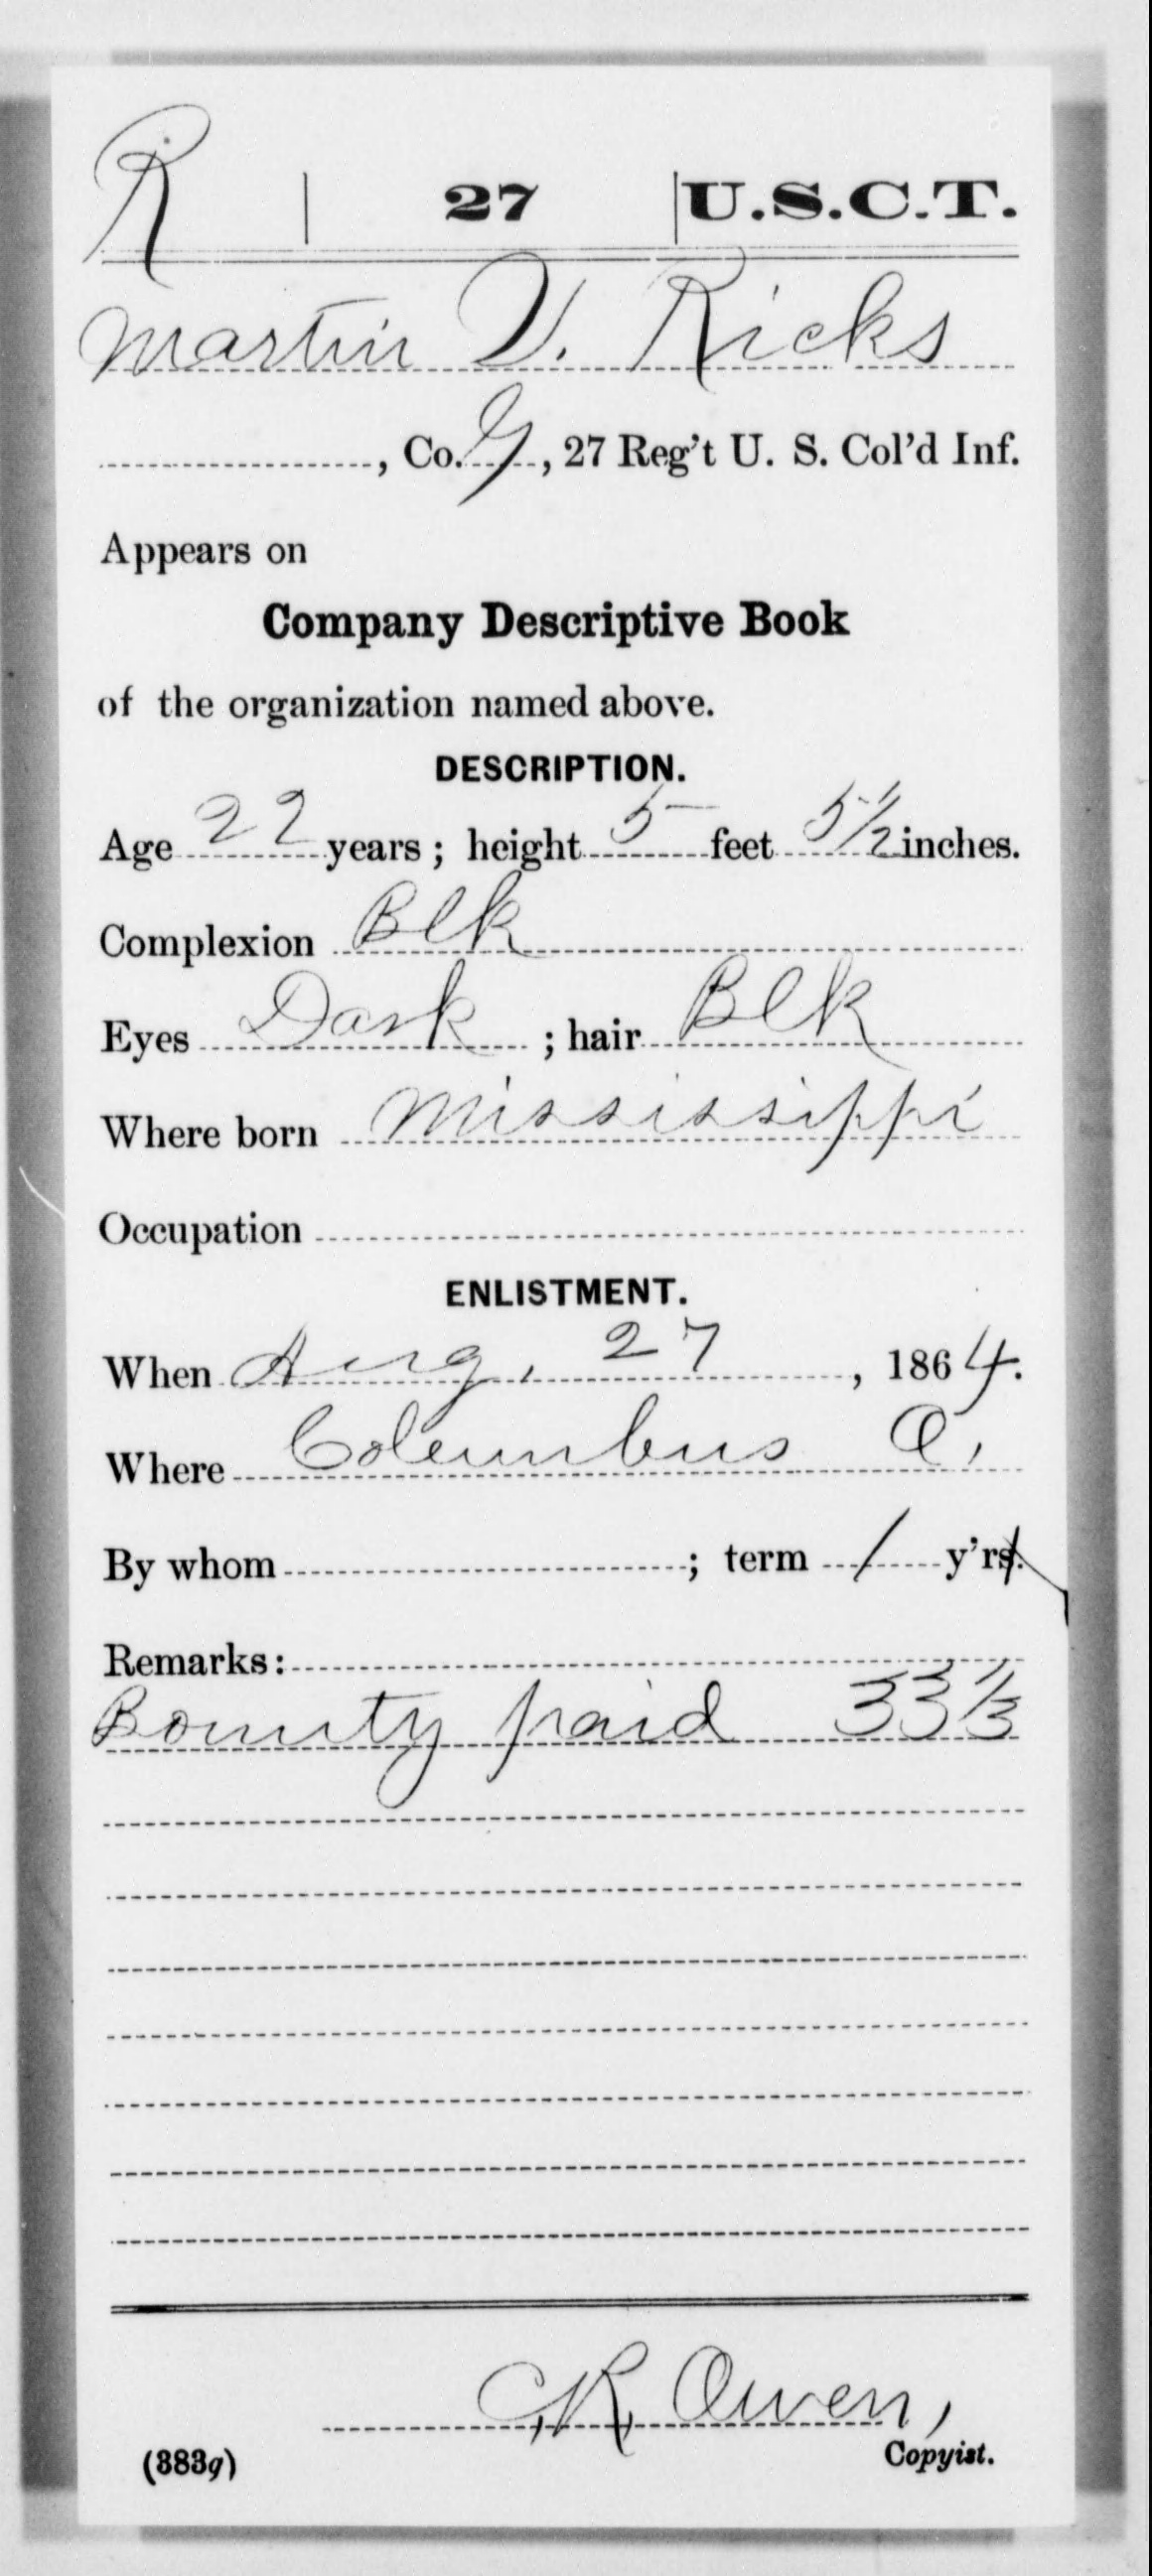 R | 27 | U.S.C.T.
Martin V. Ricks
, Co. G, 27 Reg't U. S. Col'd Inf.
Appears on
Company Descriptive Book
of the organization named above.
DESCRIPTION.
Age 22 years; height 5 feet 5 1/2 inches.
Complexion Blk
Eyes Dark; hair Blk
Where born Mississippi
Occupation
ENLISTMENT.
When Aug. 27, 1864.
Where Columbus O.
By whom; term 1 y'rs.
Remarks:
Bounty paid 33 1/3
C.R. Owen,
(383g) Copyist.